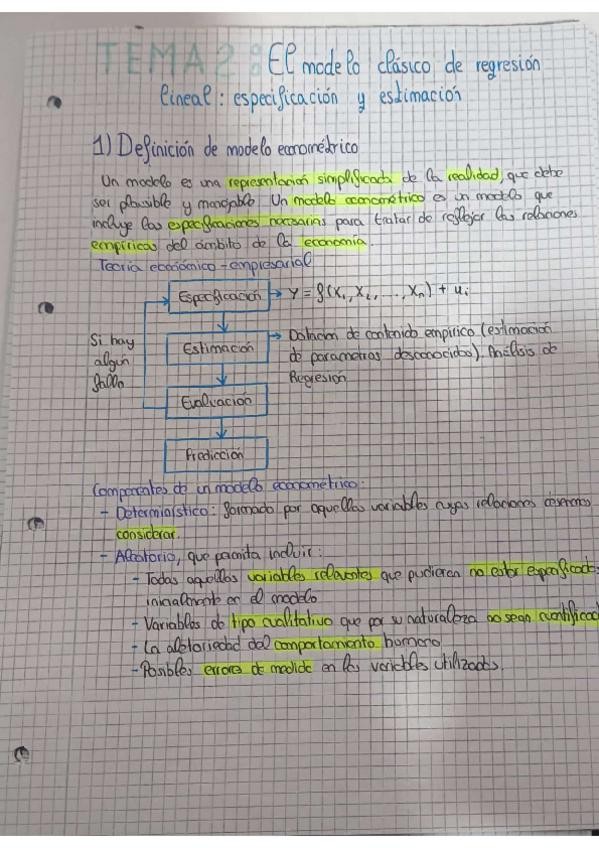 TEMA 2: El modelo clásico de regresión
lineal: especificación y estimación
1) Definición de modelo econométrico
Un modelo es una representación simplificada de la realidad, que debe
ser plausible y manejable. Un modelo econométrico es un modelo que
incluye las especificaciones necesarias para tratar de reflejar las relaciones
empíricas del ámbito de la economía.
Teoría económico-empresarial
Especificación → Y = f(X₁, X₂, ..., Xₙ) + uᵢ
Si hay
algún
fallo
Estimación → Dotación de contenido empírico (estimación
de parámetros desconocidos). Análisis de
Regresión
Evaluación
Predicción
Componentes de un modelo econométrico:
- Determinístico: formado por aquellas variables cuyas relaciones
considerar.
- Aleatorio, que permita incluir:
- Todas aquellas variables relevantes que pudieran no estar especificadas
inicialmente en el modelo
- Variables de tipo cualitativo que por su naturaleza no sean cuantificad
- La aleatoriedad del comportamiento humano
- Posibles errores de medida en las variables utilizadas.